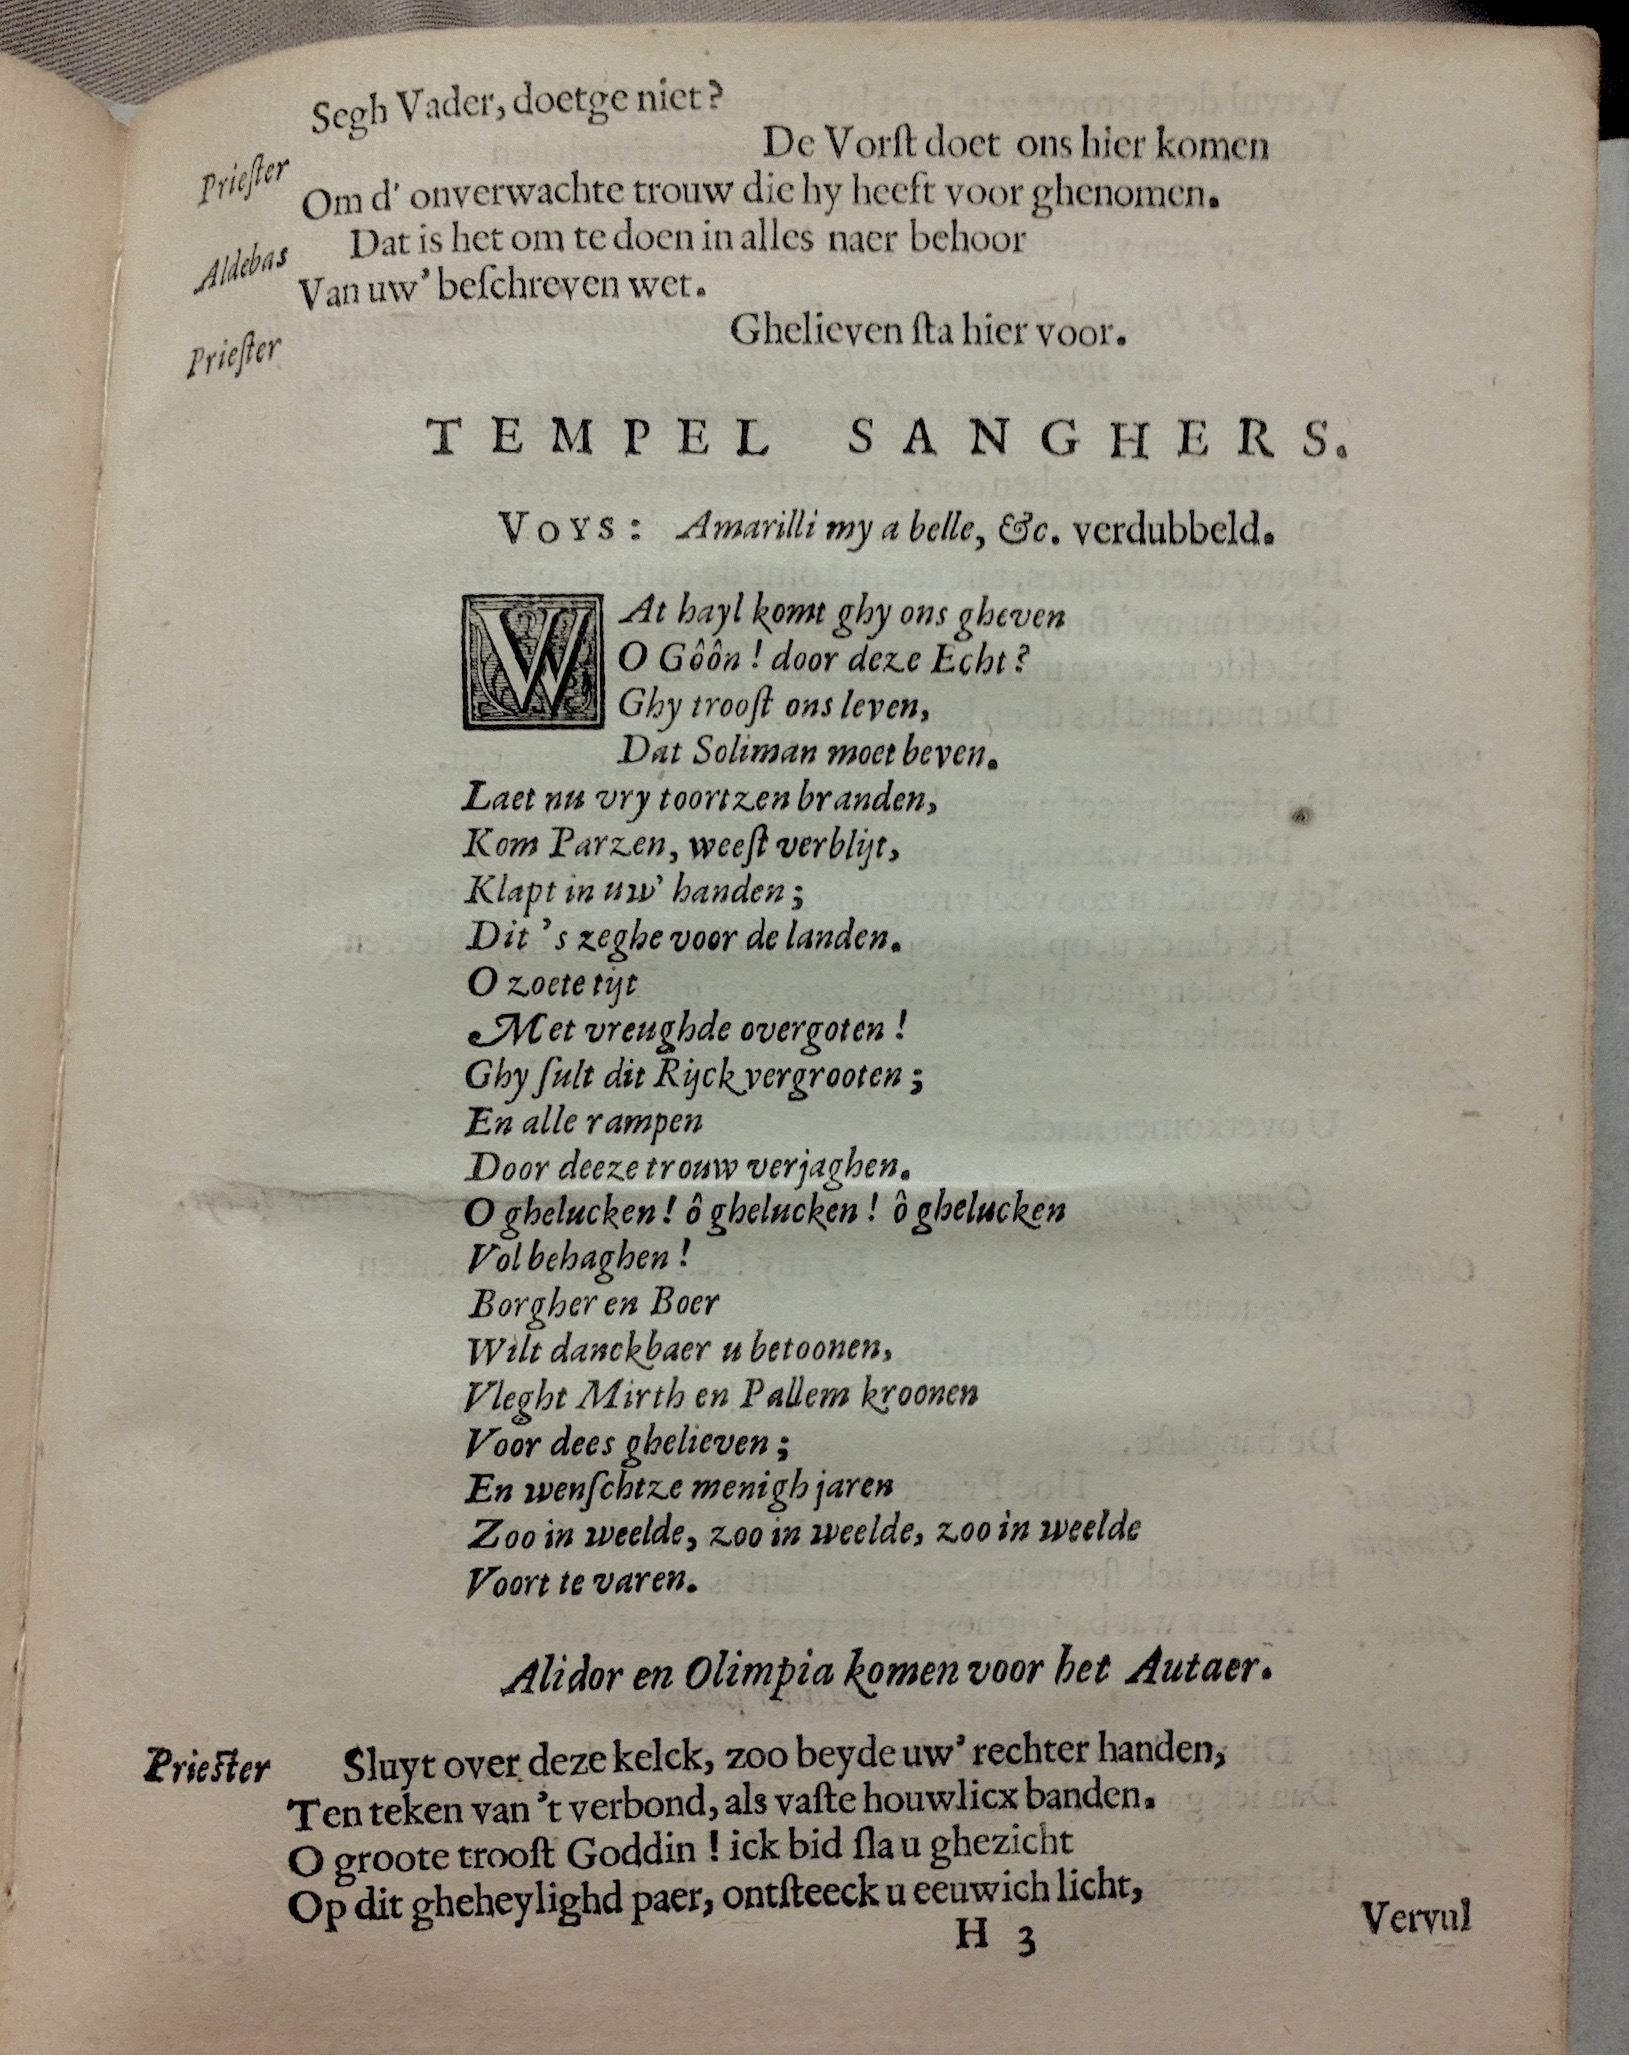 Segh Vader, doetge niet?
Prieſter De Vorſt doet ons hier komen
Om d' onverwachte trouw die hy heeft voor ghenomen.
Aldebas Dat is het om te doen in alles naer behoor
Van uw' beſchreven wet.
Prieſter Ghelieven ſta hier voor.
TEMPEL SANGHERS.
VOYS: Amarilli my a belle, &c. verdubbeld.
WAt hayl komt ghy ons gheven
O Gôôn! door deze Echt?
Ghy trooſt ons leven,
Dat Soliman moet beven.
Laet nu vry toortzen branden,
Kom Parzen, weeſt verblijt,
Klapt in uw' handen;
Dit 's zeghe voor de landen.
O zoete tijt
Met vreughde overgoten!
Ghy ſult dit Rijck vergrooten;
En alle rampen
Door deeze trouw verjaghen.
O ghelucken! ô ghelucken! ô ghelucken
Vol behaghen!
Borgher en Boer
Wilt danckbaer u betoonen,
Vleght Mirth en Pallem kroonen
Voor dees ghelieven;
En wenſchtze menigh jaren
Zoo in weelde, zoo in weelde, zoo in weelde
Voort te varen.
Alidor en Olimpia komen voor het Autaer.
Prieſter Sluyt over deze kelck, zoo beyde uw' rechter handen,
Ten teken van 't verbond, als vaſte houwlicx banden.
O groote trooſt Goddin! ick bid ſla u ghezicht
Op dit gheheylighd paer, ontſteeck u eeuwich licht,
H 3 Vervul